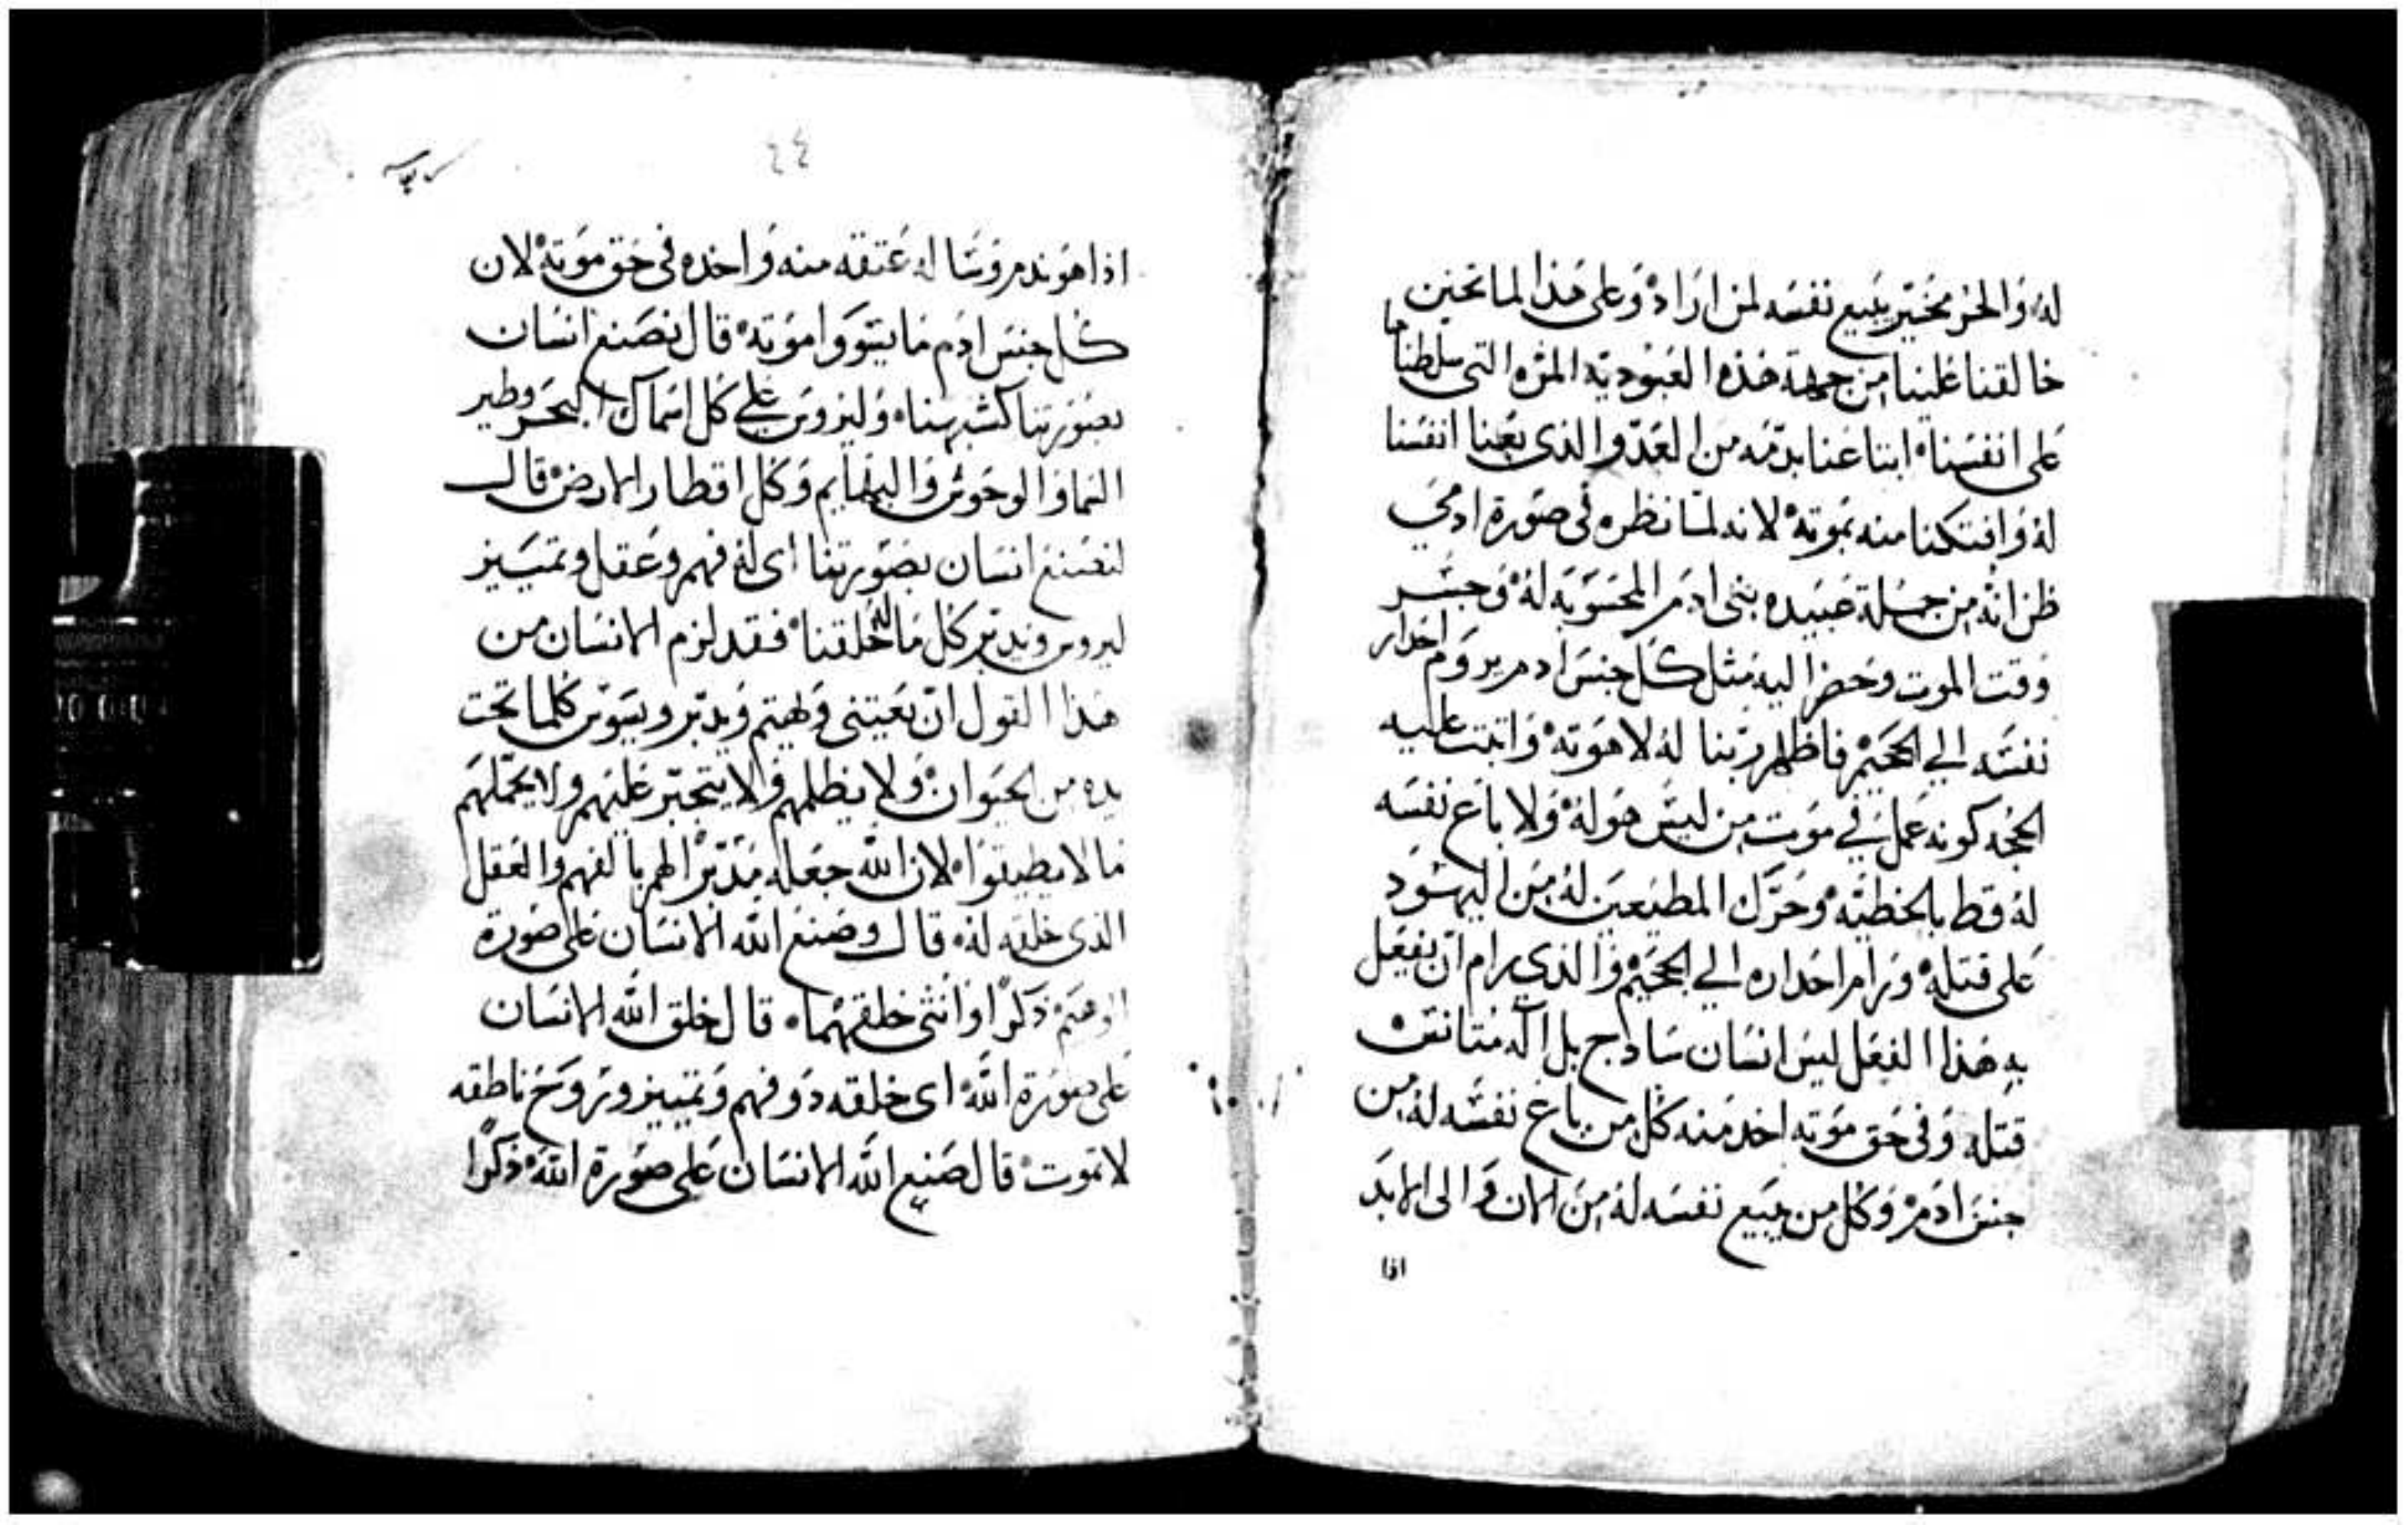 له والحر مخير يبيع نفسه لمن اراد وعلى هذا لما تحنن
خالقنا علينا من جهة هذه العبوديه المره التى سلطناها
على انفسنا ابتاعنا بدمه من العدو الذى بعنا انفسنا
له وافتكنا منه بموته لانه لما نظره فى صورة ادمي
ظن انه من جملة عبيده بنى ادم المحسوبه له وجسر
وقت الموت وحضر اليه مثل كل جنس ادم يروم احدار
نفسه الي الجحيم فاظهر ربنا له لاهوته واثبت عليه
الحجه كونه عمل في موت من ليس هو له ولا باع نفسه
له قط بالخطيه وحرك المطيعين له من اليهود
على قتله ورام احداره الي الجحيم والذي رام ان يفعل
به هذا الفعل ليس انسان سادج بل اله متانس
قتله وفى حق موته اخد منه كل من باع نفسه له من
جنس ادم وكل من يبيع نفسه له من الان والى الابد
اذا
٤٤
اذا هو ندم وسال عتقه منه واخده فى حق موته لان
كل جنس ادم ما يسووا موته قال نصنع انسان
بصورتنا كشبهنا وليروس علي كل اسماك البحر وطير
السما والوحوش والبهايم وكل اقطار الارض قال
لنصنع انسان بصورتنا اى له فهم وعقل وتمييز
ليروس ويدبر كل ما خلقنا فقد لزم الانسان من
هذا القول ان يعتنى ويهتم ويدبر ويسوس كلما تحت
يده من الحيوان ولا يظلمهم ولا يتجبر عليهم ولا يحملهم
ما لا يطيقوا لان الله جعله مدبرا لهم بالفهم والعقل
الذى خلقه له قال وصنع الله الانسان على صورة
ذكرا وانثى خلقهما قال خلق الله الانسان
على صورة الله اى خلقه دو فهم وتمييز وروح ناطقه
لا تموت قال صنع الله الانسان على صورة الله ذكرا